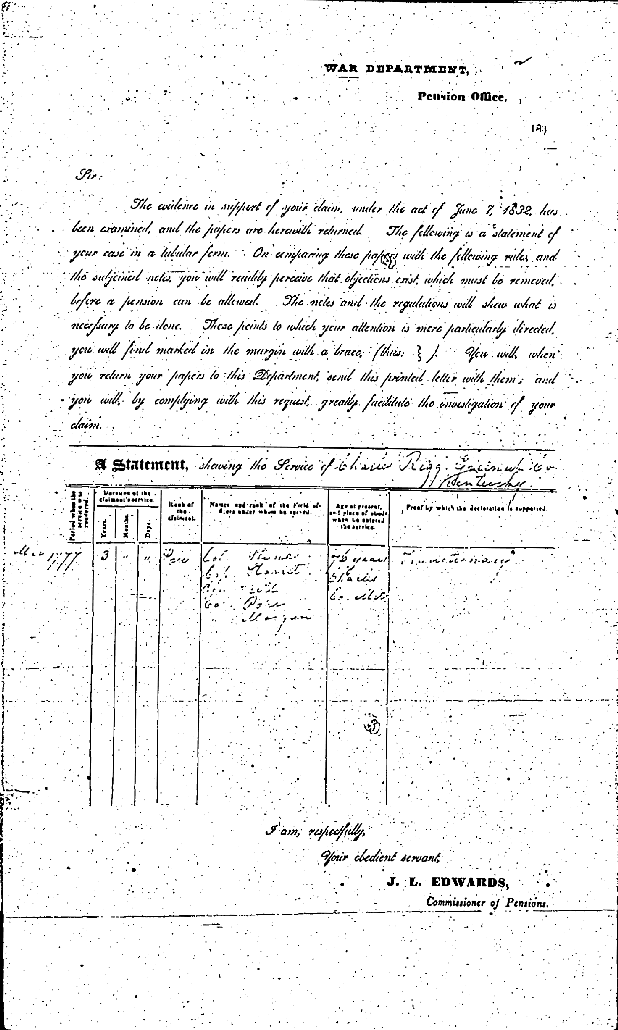 WAR DEPARTMENT,
Pension Office,
183
Sir:
The evidence in support of your claim, under the act of June 7, 1832, has
been examined, and the papers are herewith returned. The following is a statement of
your case in a tabular form. On comparing these papers with the following rules, and
the subjoined notes, you will readily perceive that objections exist, which must be removed,
before a pension can be allowed. The notes and the regulations will shew what is
necessary to be done. Those points to which your attention is more particularly directed,
you will find marked in the margin with a brace, (thus: } ). You will, when
you return your papers to this Department, send this printed letter with them; and
you will, by complying with this request, greatly facilitate the investigation of your
claim.
A Statement, shewing the Service of Rigg Co
Kentucky
Period when the service was rendered.
Duration of the claimant's service.
Years. Months. Days.
Rank of the claimant.
Names and rank of the Field officers under whom he served.
Age at present, and place of abode when he entered the service.
Proof by which the declaration is supported.
1777 3 " " Col 76 years Traditionary
Charles
Co. Md
Morgan
I am, respectfully,
Your obedient servant,
J. L. EDWARDS,
Commissioner of Pensions.